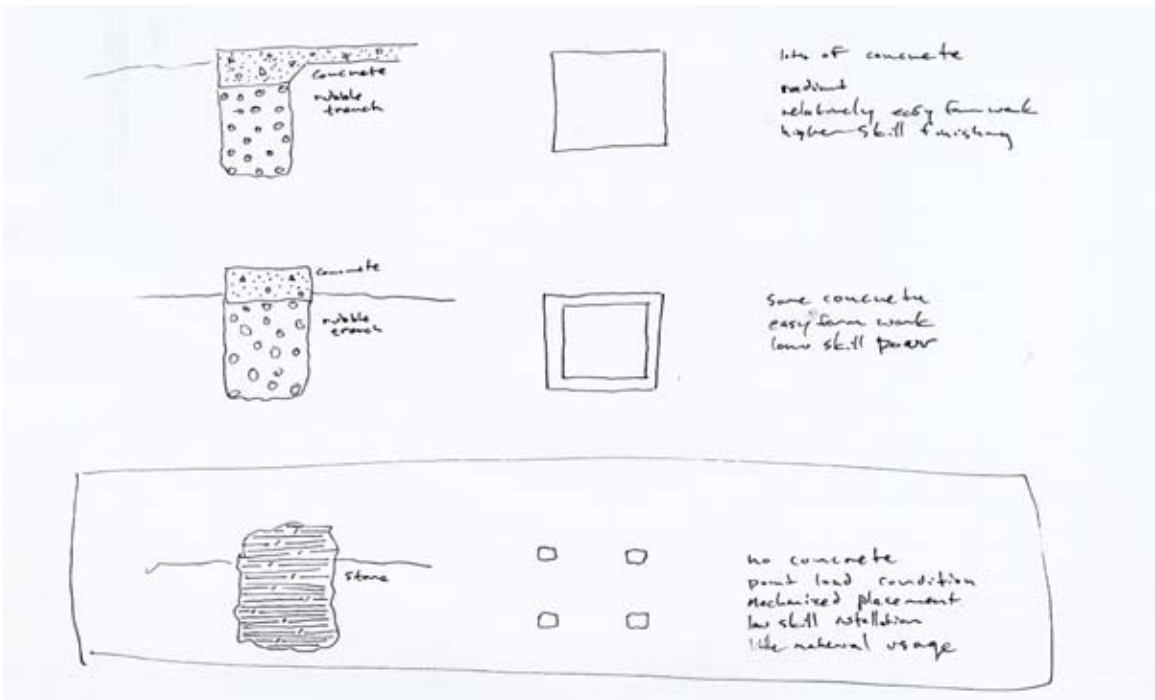 concrete
rubble
trench
lots of concrete
radiant
relatively easy form work
higher skill finishing
concrete
rubble
trench
some concrete
easy form work
low skill pour
stone
no concrete
point load condition
mechanized placement
low skill installation
little material usage